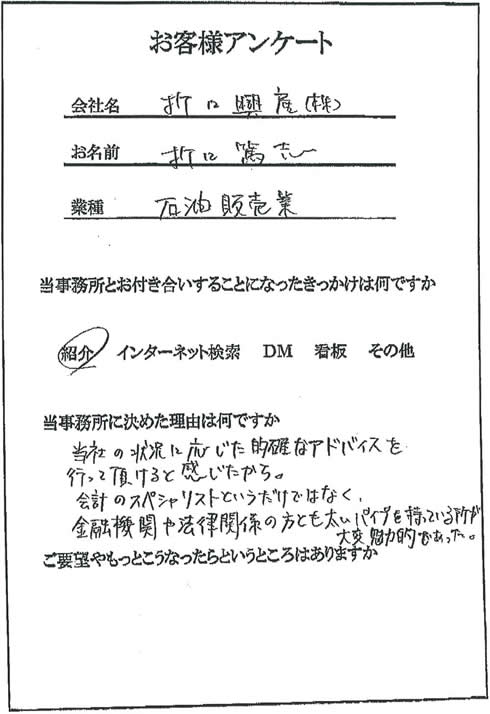 お客様アンケート
会社名 折口興産(株)
お名前 折口篤志
業種 石油販売業
当事務所とお付き合いすることになったきっかけは何ですか
紹介 インターネット検索 DM 看板 その他
当事務所に決めた理由は何ですか
当社の状況に応じた的確なアドバイスを
行って頂けると感じたから。
会計のスペシャリストというだけではなく、
金融機関や法律関係の方とも太いパイプを持っている所が
大変魅力的であった。
ご要望やもっとこうなったらというところはありますか